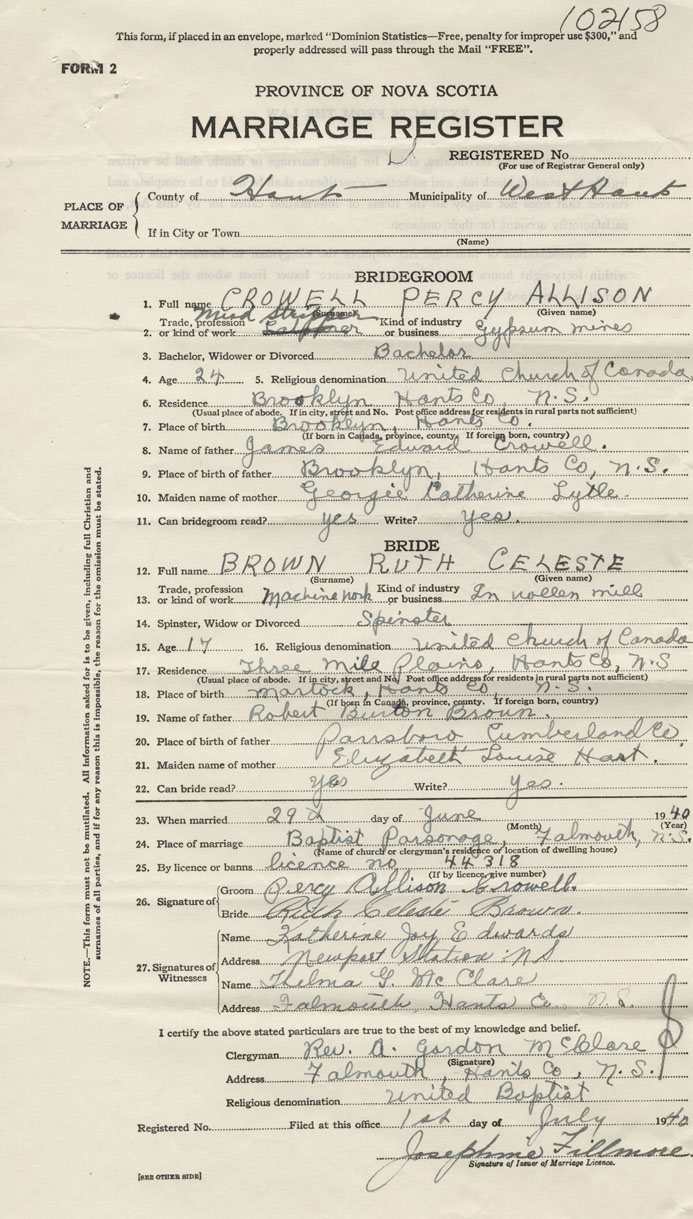 102158
This form, if placed in an envelope, marked "Dominion Statistics—Free, penalty for improper use $300," and
properly addressed will pass through the Mail "FREE".
FORM 2
PROVINCE OF NOVA SCOTIA
MARRIAGE REGISTER
REGISTERED No.
(For use of Registrar General only)
PLACE OF MARRIAGE
County of Hants Municipality of West Hants
If in City or Town
(Name)
BRIDEGROOM
1. Full name CROWELL PERCY ALLISON
(Surname) (Given name)
2. Trade, profession or kind of work Mud Stripper Kind of industry or business Gypsum mines
3. Bachelor, Widower or Divorced Bachelor
4. Age 24 5. Religious denomination United Church of Canada
6. Residence Brooklyn Hants Co, N.S.
(Usual place of abode. If in city, street and No. Post office address for residents in rural parts not sufficient)
7. Place of birth Brooklyn, Hants Co.
(If born in Canada, province, county. If foreign born, country)
8. Name of father James Edward Crowell.
9. Place of birth of father Brooklyn, Hants Co, N.S.
10. Maiden name of mother Georgie Catherine Lytle.
11. Can bridegroom read? yes Write? Yes.
BRIDE
12. Full name BROWN RUTH CELESTE
(Surname) (Given name)
13. Trade, profession or kind of work Machine work Kind of industry or business In wollen mill
14. Spinster, Widow or Divorced Spinster
15. Age 17 16. Religious denomination United Church of Canada
17. Residence Three Mile Plains, Hants Co, N.S
(Usual place of abode. If in city, street and No. Post office address for residents in rural parts not sufficient)
18. Place of birth Martock, Hants Co, N.S.
(If born in Canada, province, county. If foreign born, country)
19. Name of father Robert Burton Brown.
20. Place of birth of father Parrsboro Cumberland Co
21. Maiden name of mother Elizabeth Louise Hart.
22. Can bride read? Yes Write? Yes.
23. When married 29th day of June 1940
(Month) (Year)
24. Place of marriage Baptist Parsonage, Falmouth, N.S.
(Name of church or clergyman's residence or location of dwelling house)
25. By licence or banns licence no 44318
(If by licence, give number)
26. Signature of
Groom Percy Allison Crowell.
Bride Ruth Celeste Brown.
27. Signatures of Witnesses
Name Katherine Joy Edwards
Address Newport Station NS
Name Thelma G. McClare
Address Falmouth, Hants Co, N.S.
I certify the above stated particulars are true to the best of my knowledge and belief.
Clergyman Rev. A. Gordon McClare
(Signature)
Address Falmouth, Hants Co, N.S.
Religious denomination United Baptist
Registered No. Filed at this office 1st day of July 1940
Josephine Fillmore
Signature of Issuer of Marriage Licence.
[SEE OTHER SIDE]
NOTE.—This form must not be mutilated. All information asked for is to be given, including full Christian and
surnames of all parties, and if for any reason this is impossible, the reason for the omission must be stated.